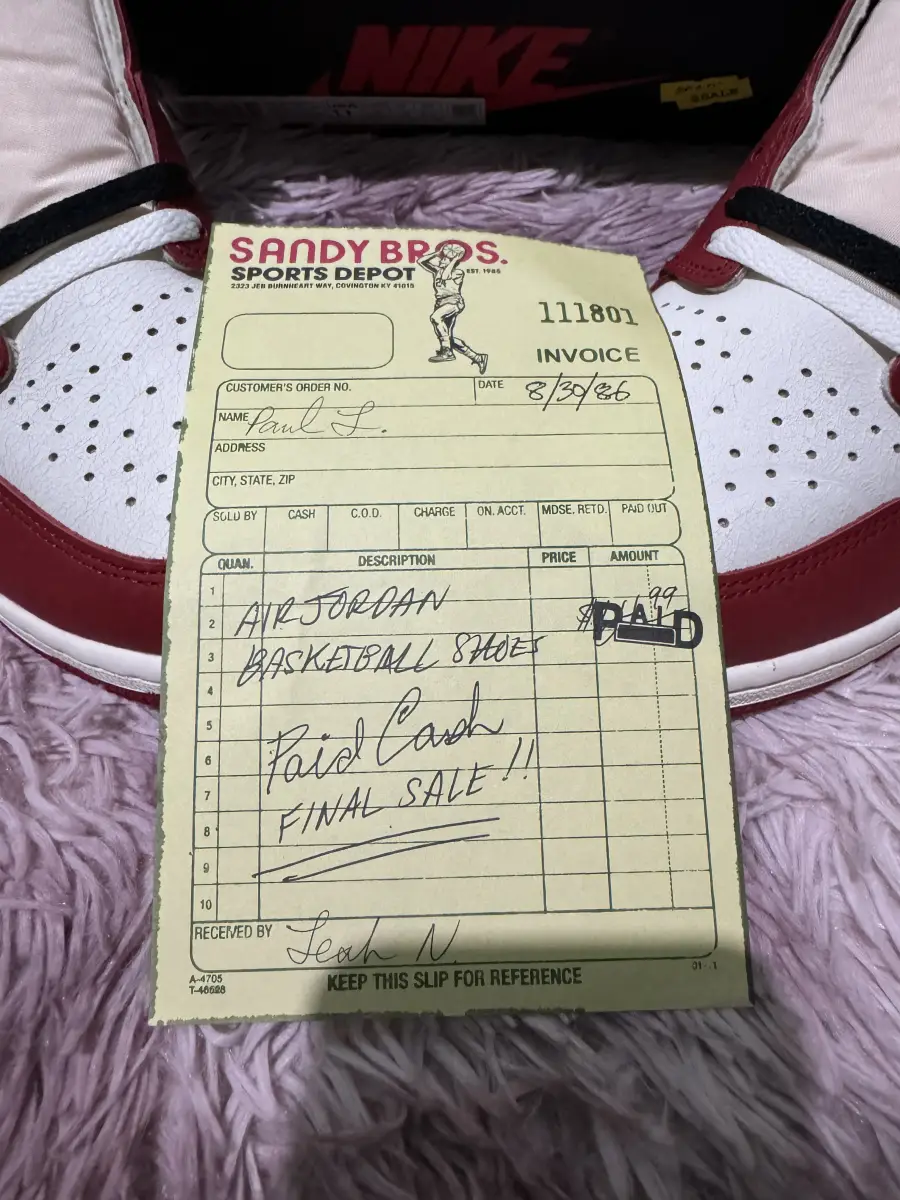 NIKE
SANDY BROS.
SPORTS DEPOT
EST. 1985
2323 JEB BURNHEART WAY, COVINGTON KY 41015
111801
INVOICE
CUSTOMER'S ORDER NO.
DATE 8/30/86
NAME Paul L.
ADDRESS
CITY, STATE, ZIP
SOLD BY CASH C.O.D. CHARGE ON. ACCT. MDSE. RETD. PAID OUT
QUAN. DESCRIPTION PRICE AMOUNT
1
2 AIR JORDAN
PAID
3 BASKETBALL SHOES
4
5
6 Paid Cash
7
8 FINAL SALE!!
9
10
RECEIVED BY Leah N.
A-4705
T-46528
KEEP THIS SLIP FOR REFERENCE